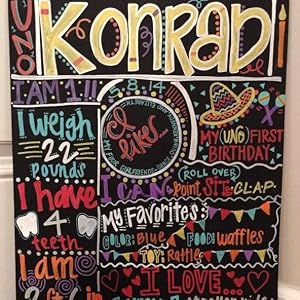 UNO
KONRAD
I AM 1!!
5.8.14
I weigh
22
POUNDS
I have
4
teeth
I am
I like...
MY (UNO) FIRST
BIRTHDAY
ROLL OVER
I CAN: point SIT CLAP
MY FAVORITES:
COLOR: Blue FOOD: WAFFLES
TOY: Rattle
I LOVE...